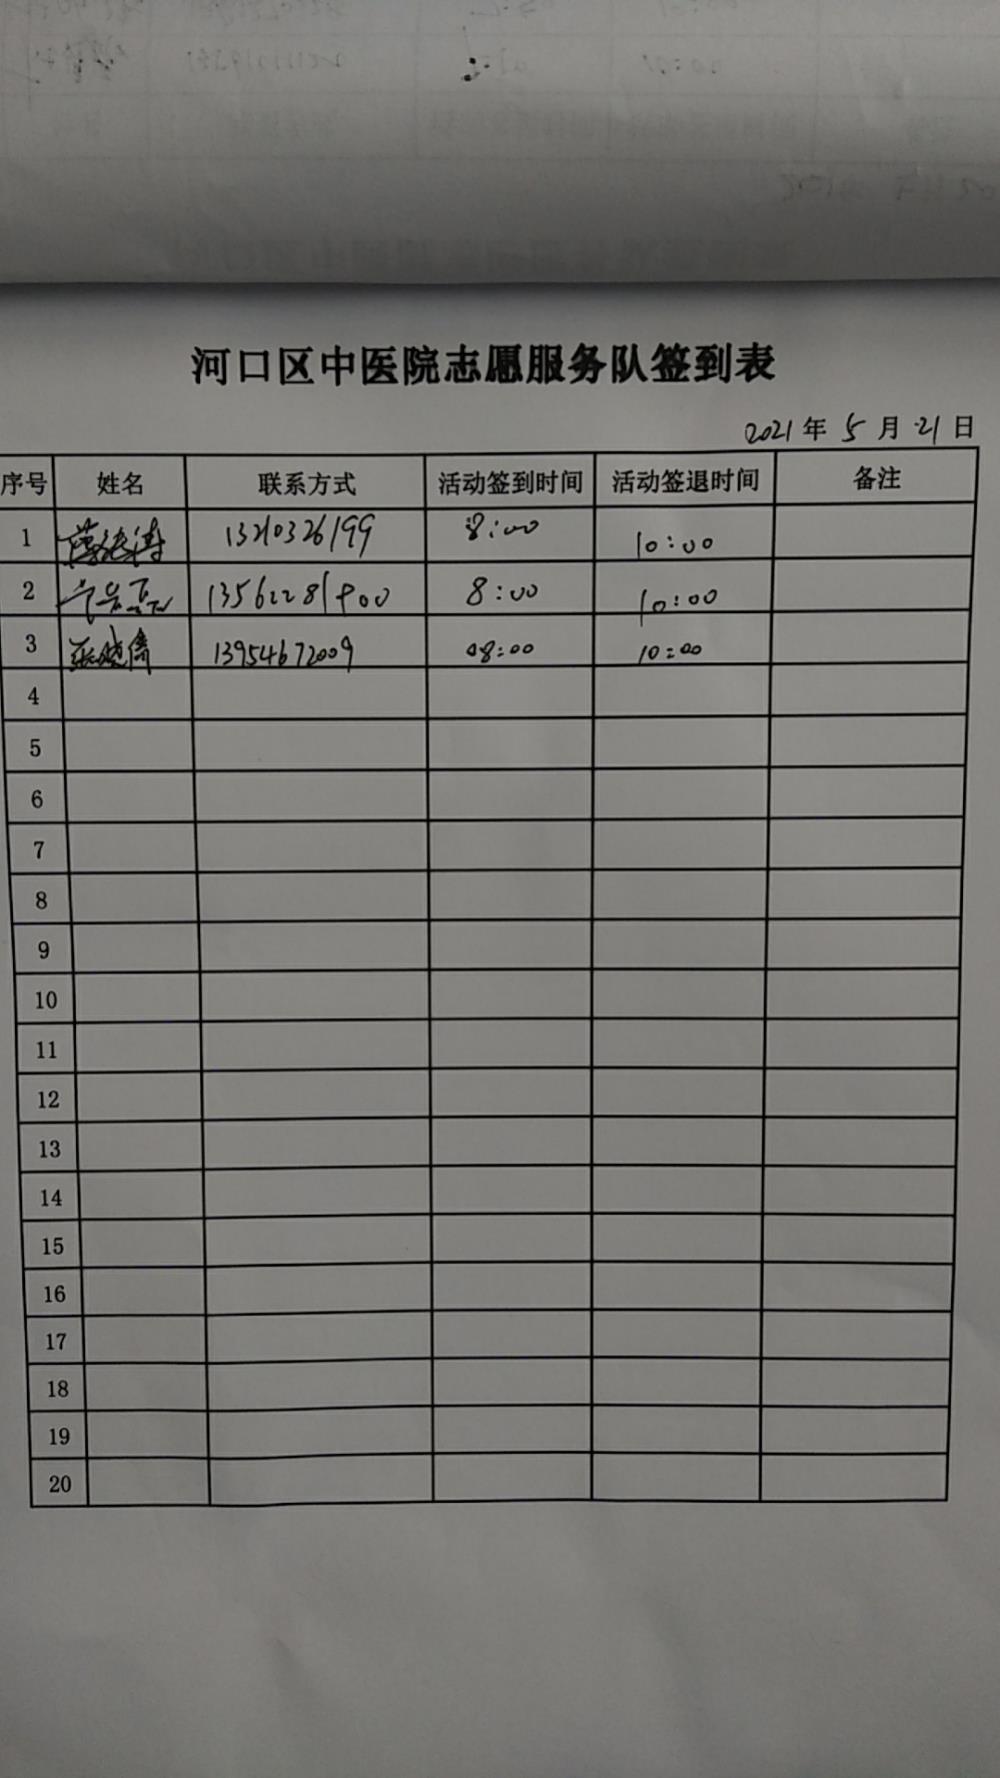 河口区中医院志愿服务队签到表
2021年5月21日
序号 姓名 联系方式 活动签到时间 活动签退时间 备注
1 13210326199 8:00 10:00
2 8:00 10:00
3 张晓倩 13954672009 08:00 10:00
4
5
6
7
8
9
10
11
12
13
14
15
16
17
18
19
20